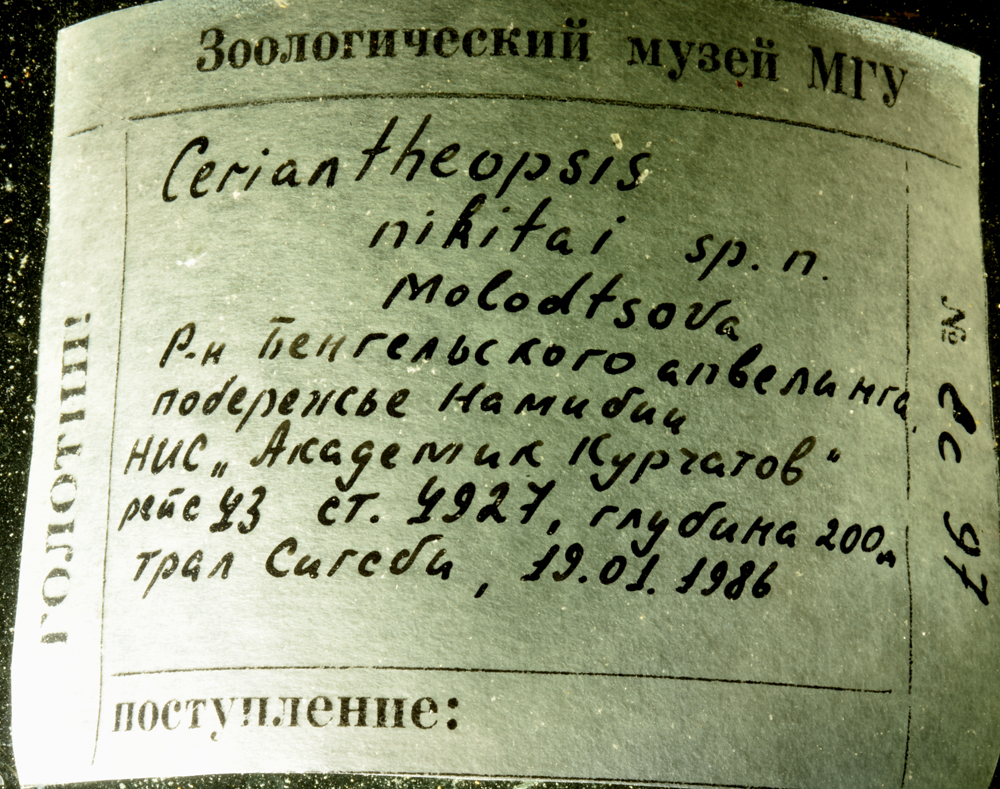 Зоологический музей МГУ
ГОЛОТИП!
Ceriantheopsis
nikitai sp. n.
Molodtsova
Р-н Бенгельского апвелинга,
побережье Намибии
НИС „Академик Курчатов“
рейс 43 ст. 4927, глубина 200м
трал Сигсби, 19.01.1986
№ Ec 97
поступление: